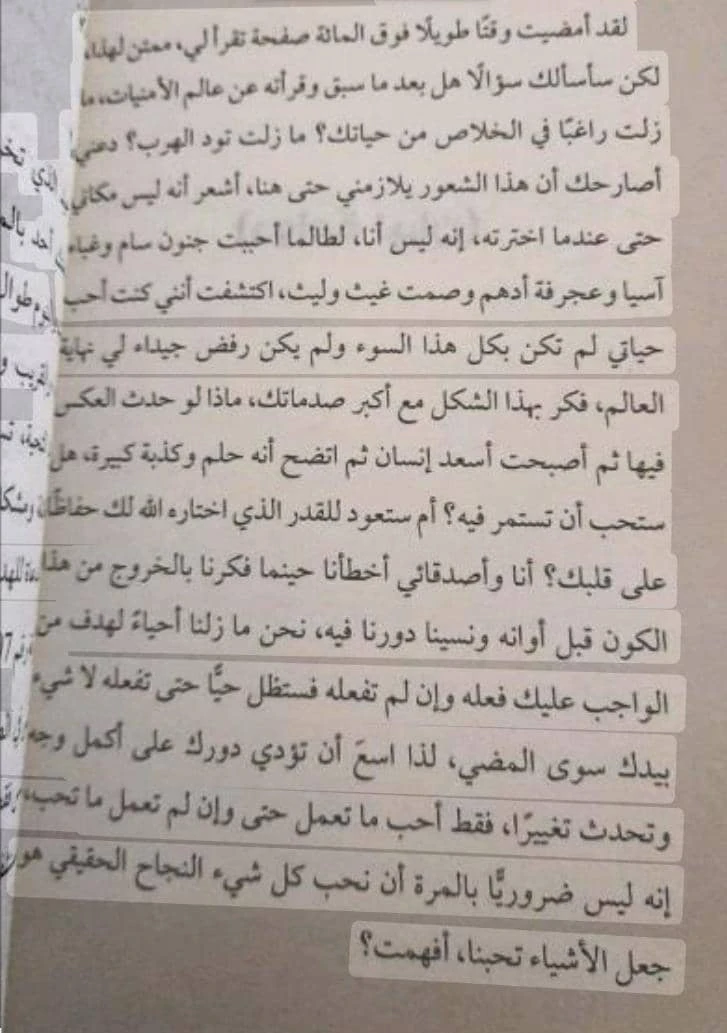 لقد أمضيت وقتًا طويلًا فوق المائة صفحة تقرأ لي، ممتن لهذا،
لكن سأسألك سؤالًا هل بعد ما سبق وقرأته عن عالم الأمنيات، ما
زلت راغبًا في الخلاص من حياتك؟ ما زلت تود الهرب؟ دعني
أصارحك أن هذا الشعور يلازمني حتى هنا، أشعر أنه ليس مكاني
حتى عندما اخترته، إنه ليس أنا، لطالما أحببت جنون سام وغباء
آسيا وعجرفة أدهم وصمت غيث وليث، اكتشفت أنني كنت أحب
حياتي لم تكن بكل هذا السوء ولم يكن رفض جيداء لي نهاية
العالم، فكر بهذا الشكل مع أكبر صدماتك، ماذا لو حدث العكس
فيها ثم أصبحت أسعد إنسان ثم اتضح أنه حلم وكذبة كبيرة، هل
ستحب أن تستمر فيه؟ أم ستعود للقدر الذي اختاره الله لك حفاظًا
على قلبك؟ أنا وأصدقائي أخطأنا حينما فكرنا بالخروج من هذا
الكون قبل أوانه ونسينا دورنا فيه، نحن ما زلنا أحياءً لهدف من
الواجب عليك فعله وإن لم تفعله فستظل حيًّا حتى تفعله لا شيء
بيدك سوى المضي، لذا اسعَ أن تؤدي دورك على أكمل وجه
وتحدث تغييرًا، فقط أحب ما تعمل حتى وإن لم تعمل ما تحب،
إنه ليس ضروريًّا بالمرة أن نحب كل شيء النجاح الحقيقي هو
جعل الأشياء تحبنا، أفهمت؟